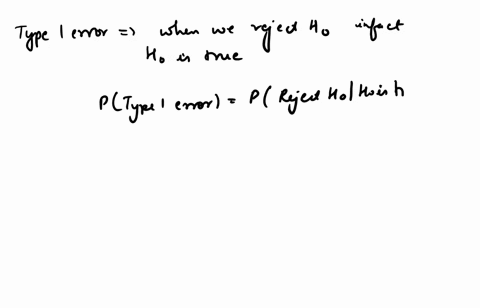 Type 1 error => when we reject H0 infact
H0 is true
P(Type 1 error) = P( Reject H0 | H0 is